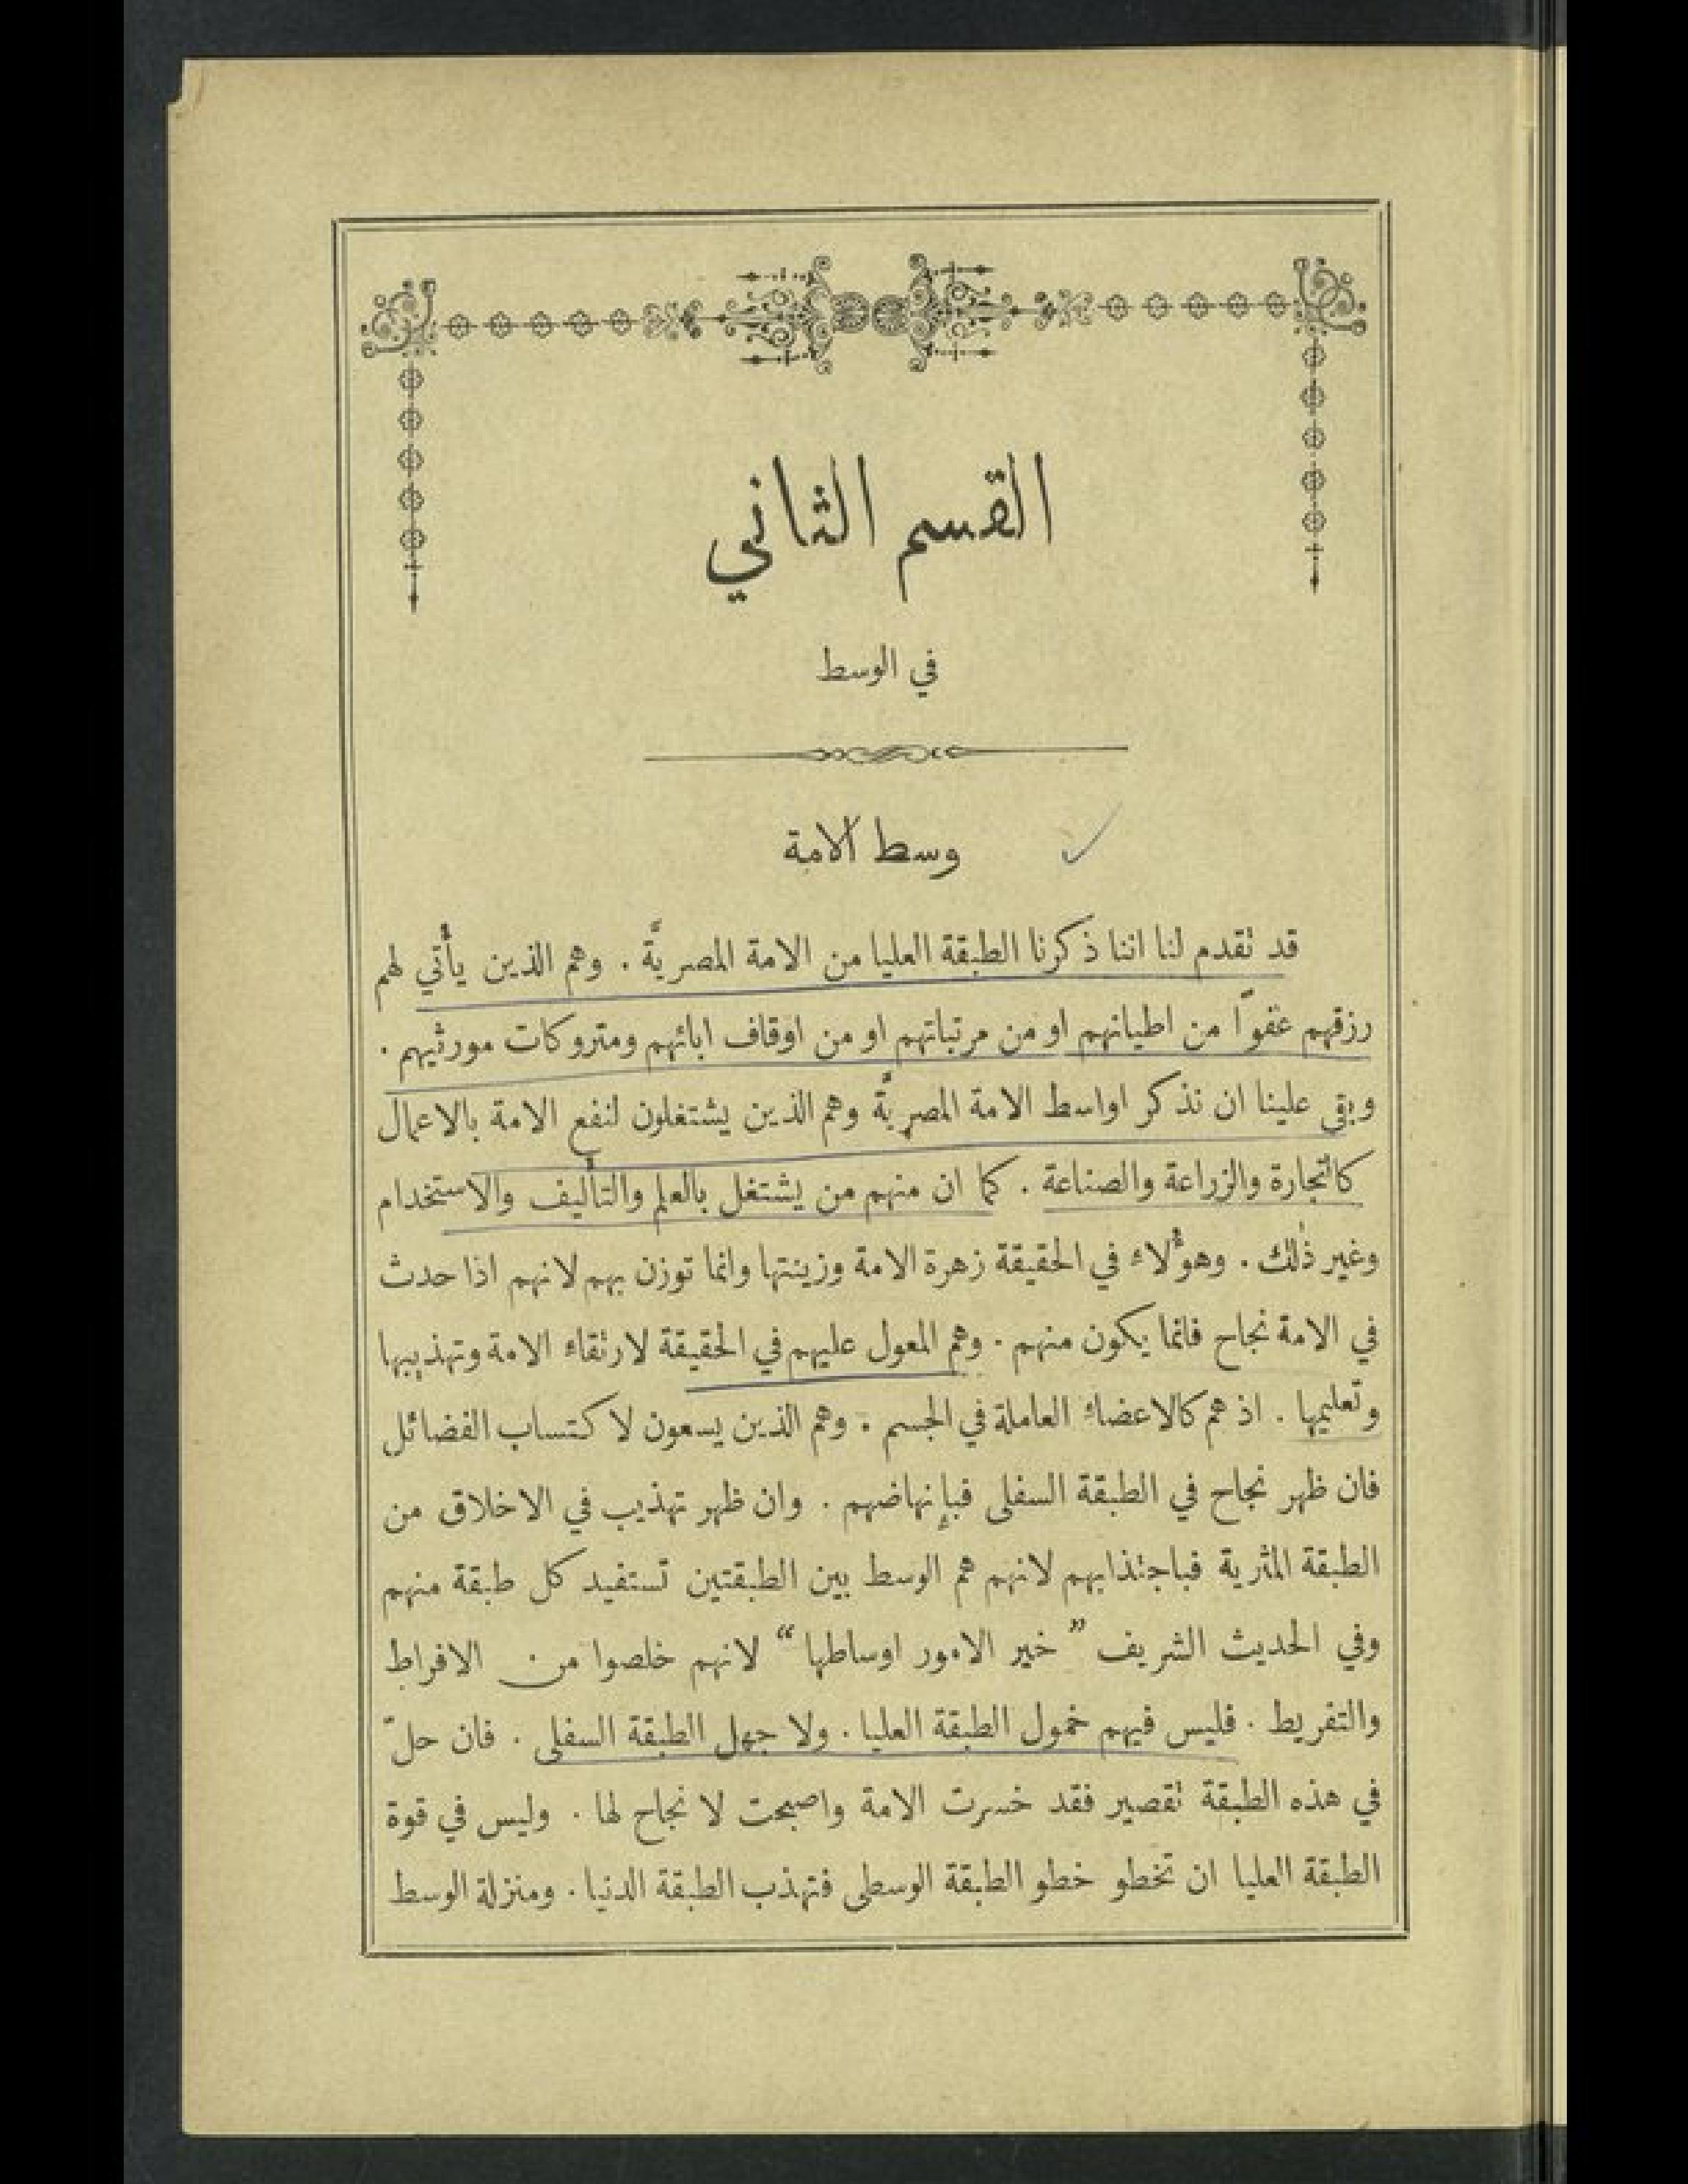 القسم الثاني
في الوسط
وسط الامة
قد تقدم لنا اننا ذكرنا الطبقة العليا من الامة المصريَّة . وهم الذين يأْتي لهم
رزقهم عفوًا من اطيانهم او من مرتباتهم او من اوقاف ابائهم ومتروكات مورثيهم .
وبقي علينا ان نذكر اواسط الامة المصريَّة وهم الذين يشتغلون لنفع الامة بالاعمال
كالتجارة والزراعة والصناعة . كما ان منهم من يشتغل بالعلم والتأليف والاستخدام
وغير ذٰلك . وهؤُلاء في الحقيقة زهرة الامة وزينتها وانما توزن بهم لانهم اذا حدث
في الامة نجاح فانما يكون منهم . وهم المعول عليهم في الحقيقة لارتقاء الامة وتهذيبها
وتعليمها . اذ هم كالاعضاء العاملة في الجسم . وهم الذين يسعون لاكتساب الفضائل
فان ظهر نجاح في الطبقة السفلى فبإنهاضهم . وان ظهر تهذيب في الاخلاق من
الطبقة المثرية فباجتذابهم لانهم هم الوسط بين الطبقتين تستفيد كل طبقة منهم
وفي الحديث الشريف ” خير الامور اوساطها “ لانهم خلصوا من الافراط
والتفريط . فليس فيهم خمول الطبقة العليا . ولا جهل الطبقة السفلى . فان حلّ
في هذه الطبقة تقصير فقد خسرت الامة واصبحت لا نجاح لها . وليس في قوة
الطبقة العليا ان تخطو خطو الطبقة الوسطى فتهذب الطبقة الدنيا . ومنزلة الوسط